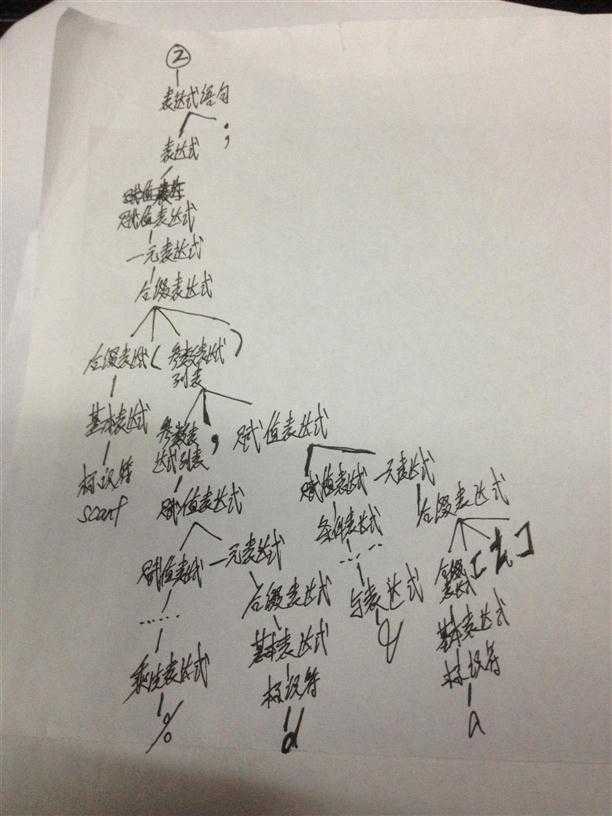 ②
表达式语句
表达式 ;
赋值表达式
一元表达式
后缀表达式
后缀表达式 ( 参数表达式列表 )
基本表达式
标识符
scanf
参数表达式列表 , 赋值表达式
赋值表达式
赋值表达式 一元表达式
赋值表达式 一元表达式
条件表达式
后缀表达式
......
后缀表达式
.....
与表达式
&
后缀表达式 [ i ]
基本表达式
基本表达式
乘法表达式
标识符
标识符
%
d
a